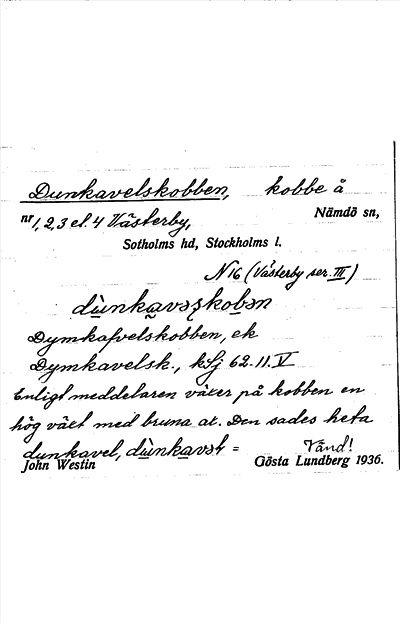 Dunkavelskobben, kobbe å
nr 1, 2, 3 el. 4 Västerby, Nämdö sn,
Sotholms hd, Stockholms l.
N 16 (Västerby ser. III)
dùnkavəʂkobən
Dymkafvelskobben, ek
Dymkavelsk., kSj 62.11.V
Enligt meddelaren växer på kobben en
hög växt med bruna ax. Den sades heta
dunkavel, dùnkavəl =
Vänd!
John Westin Gösta Lundberg 1936.